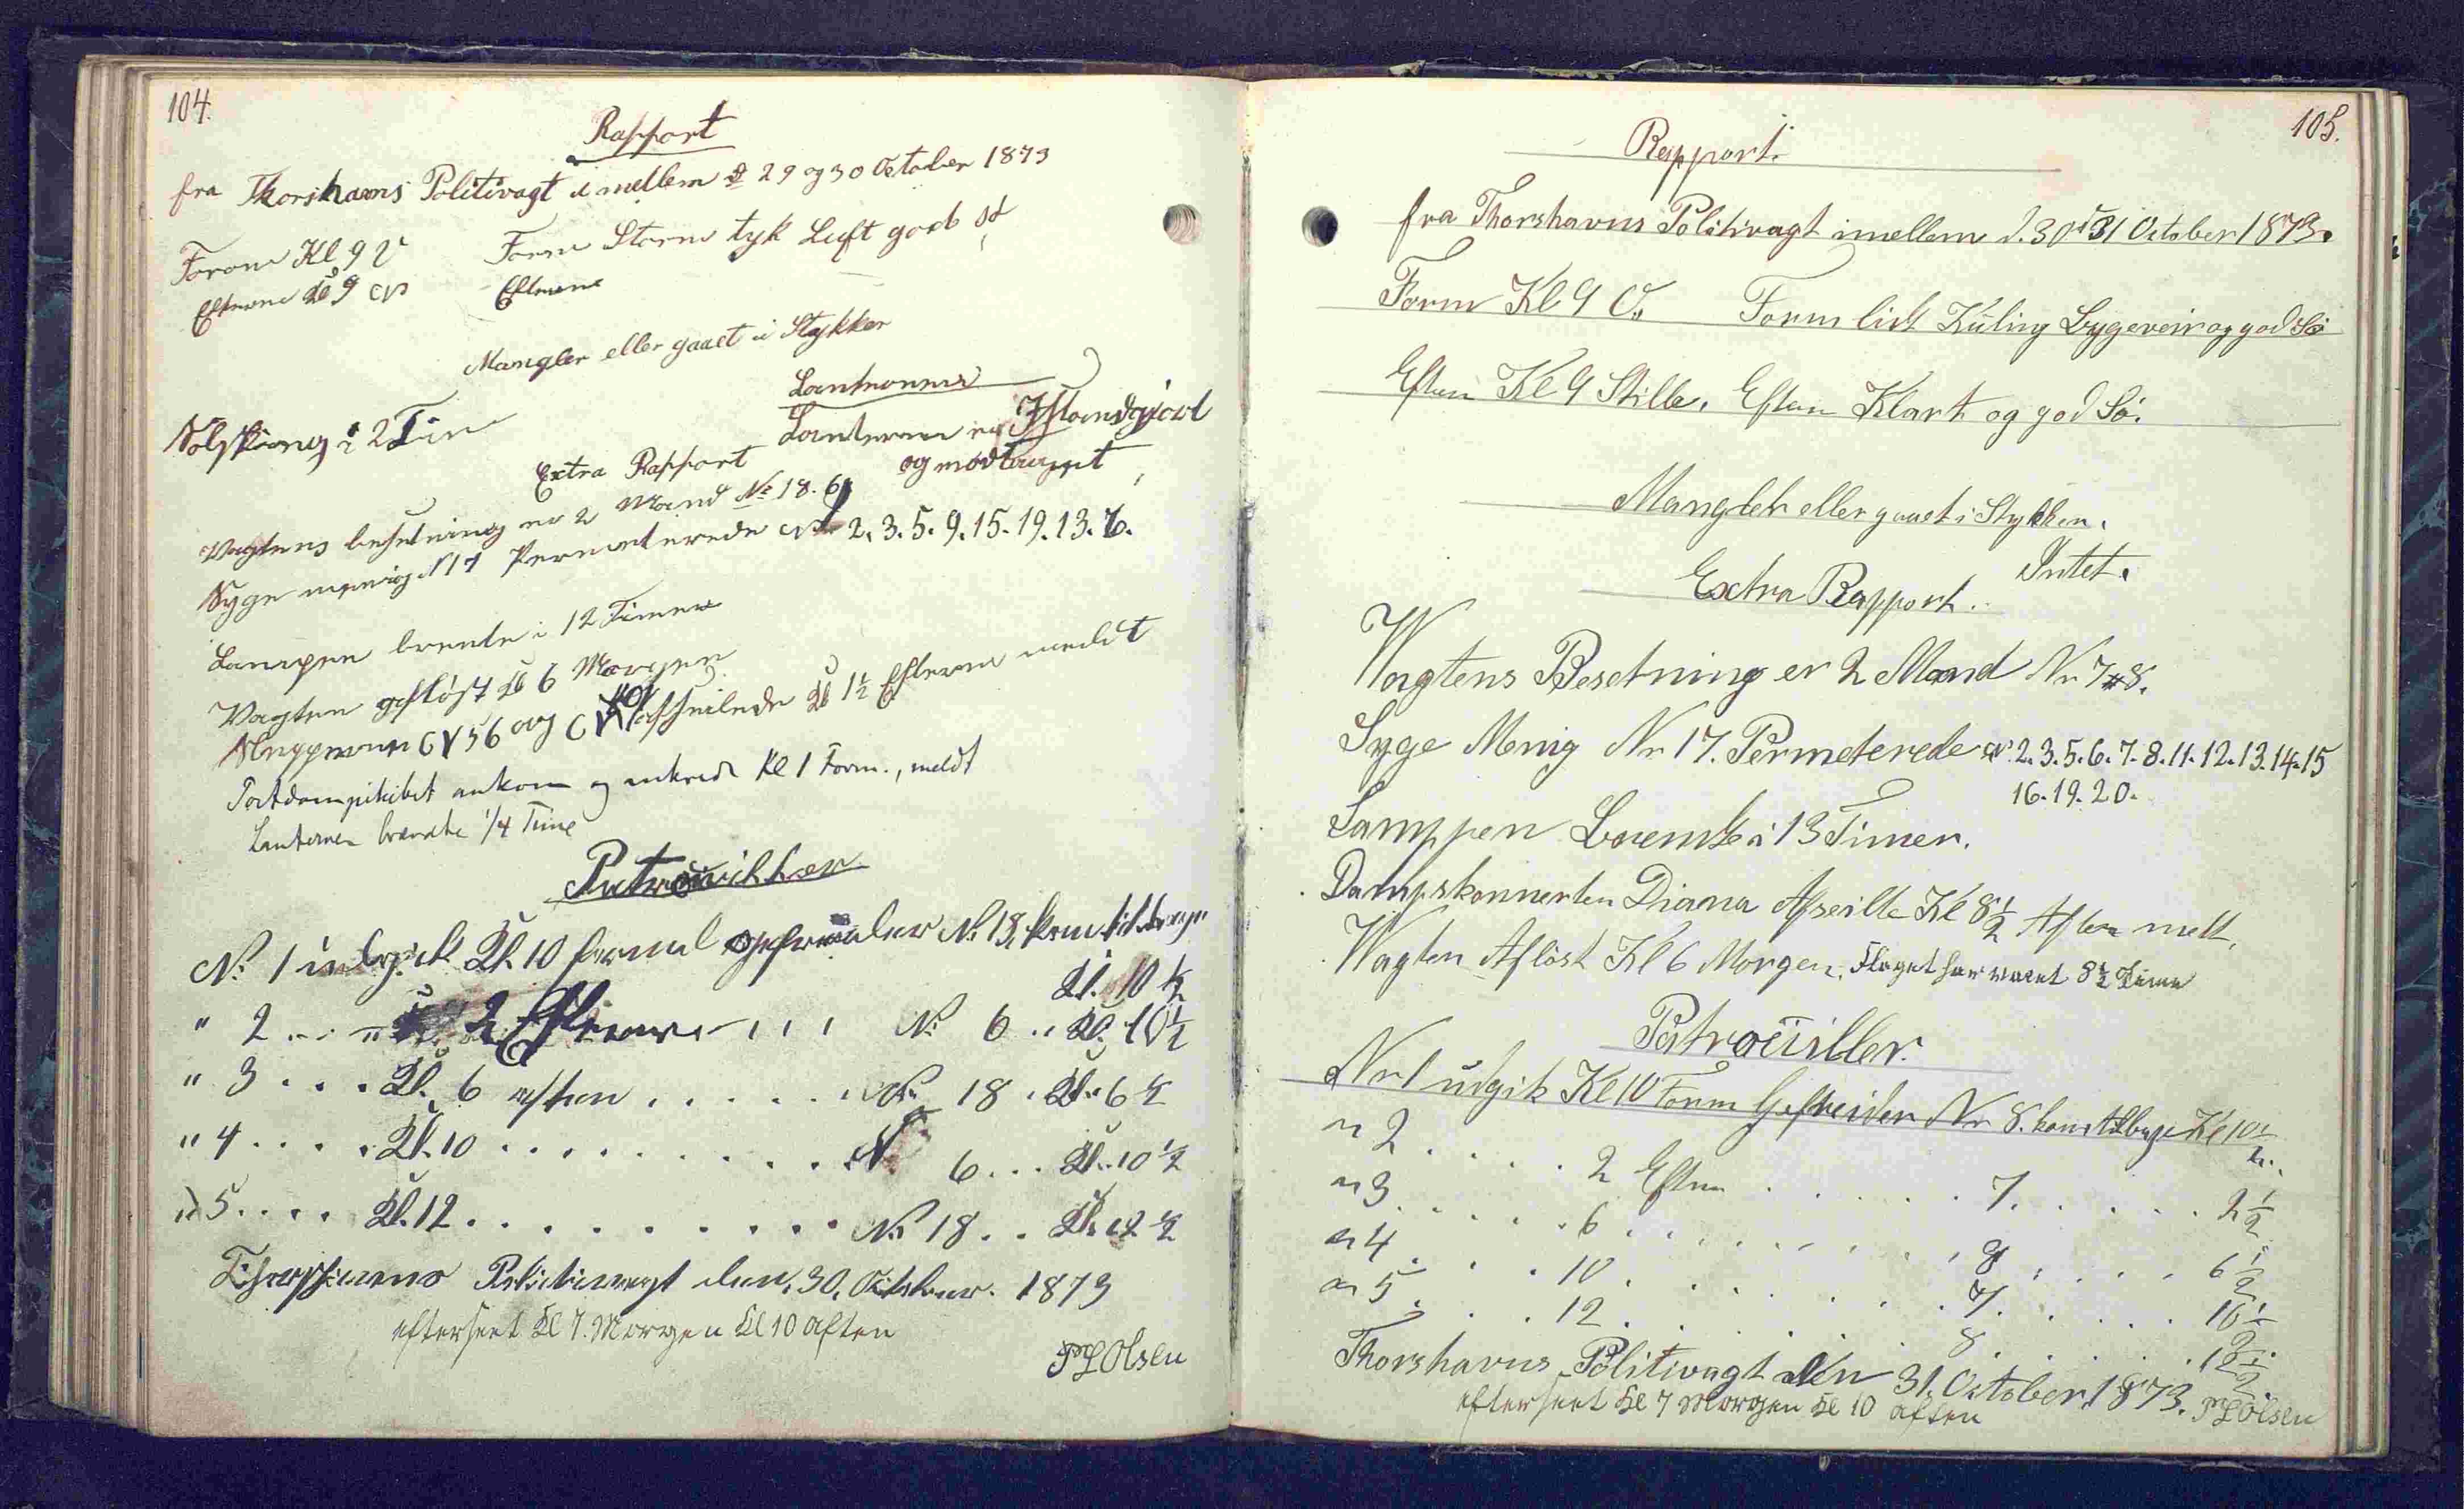 104.
Rapport
fra Thorshavns Politivagt imellem d 29 og 30 October 1873
Form Kl 9 V Form Storm tyk Luft god Sø
Efterm Kl 9 Efterm
Mangler eller gaaet i Stykker
Lanternene
2 Tim Lanternen er Istandgjort
Extra Rapport og modtaget
Vagtens besetning er 2 Mand No 18. 6
Syge menig N 17 Permeterede No 2. 3. 5. 9. 15. 19. 13. 7.
Lampen brente i 12 Timer
Vagten afløst Kl 6 Morgen
56 og afseilede Kl 1½ Efterm meldt
Postdampskibet ankom og ankrede Kl 1 Form., meldt
Lanternen brændte 1/4 Time
Patrouiller
No 1 udgik Kl. 10 formd gefreider No 18. kom tilbage
Kl. 10 ½
" 2 ... 2 Efterm . . . No 6 .. Kl. 10½
" 3 . . . Kl. 6 aften . . . . . No 18 . Kl. 6 ½
" 4 . . . . Kl. 10 . . . . . . . . . . N 6 . . . Kl. 10 ½
" 5 . . . . Kl. 12 . . . . . . . . . No 18 . . Kl. 12 ½
Thorshavns Politivagt den 30. October. 1873
efterseet Kl 7. Morgen Kl 10 aften
PL Olsen
105.
Rapport.
fra Thorshavns Politivagt imellem d. 30 & 31 October 1873.
Form Kl 9 V. Form lidt Kuling Bygeveir og god Sø
Efterm Kl 9 Stille. Efterm Klart og god Sø.
Mangler eller gaaet i Stykker.
Intet.
Extra Rapport.
Wagtens Besetning er 2 Mand Nr 7 & 8.
Syge Menig Nr 17. Permeterede No 2. 3. 5. 6. 7. 8. 11. 12. 13. 14. 15
16. 19. 20.
Lamppen Brente i 13 Timer.
Dampskonnerten Diana Afseilte Kl 8½ Aften melt.
Wagten Afløst Kl 6 Morgen. Flaget har waret 8½ Time
Patrouiller.
Nr 1 udgik Kl 10 Form Gefreider Nr 8. kom tilbage Kl 10½
" 2 . . . . 2 Efterm . . . . . . 7. . . . . . 2½
" 3 . . . . . 6 . . . . . . . . 8 . . . . 6½
" 4 . . . 10 . . . . . . . . 7. . . . . 10½
" 5 . . . 12 . . . . . . 8 . . . . . 12½
Thorshavns Politivagt den 31. October 1873.
efterseet Kl 7 Morgen Kl 10 aften PL Olsen